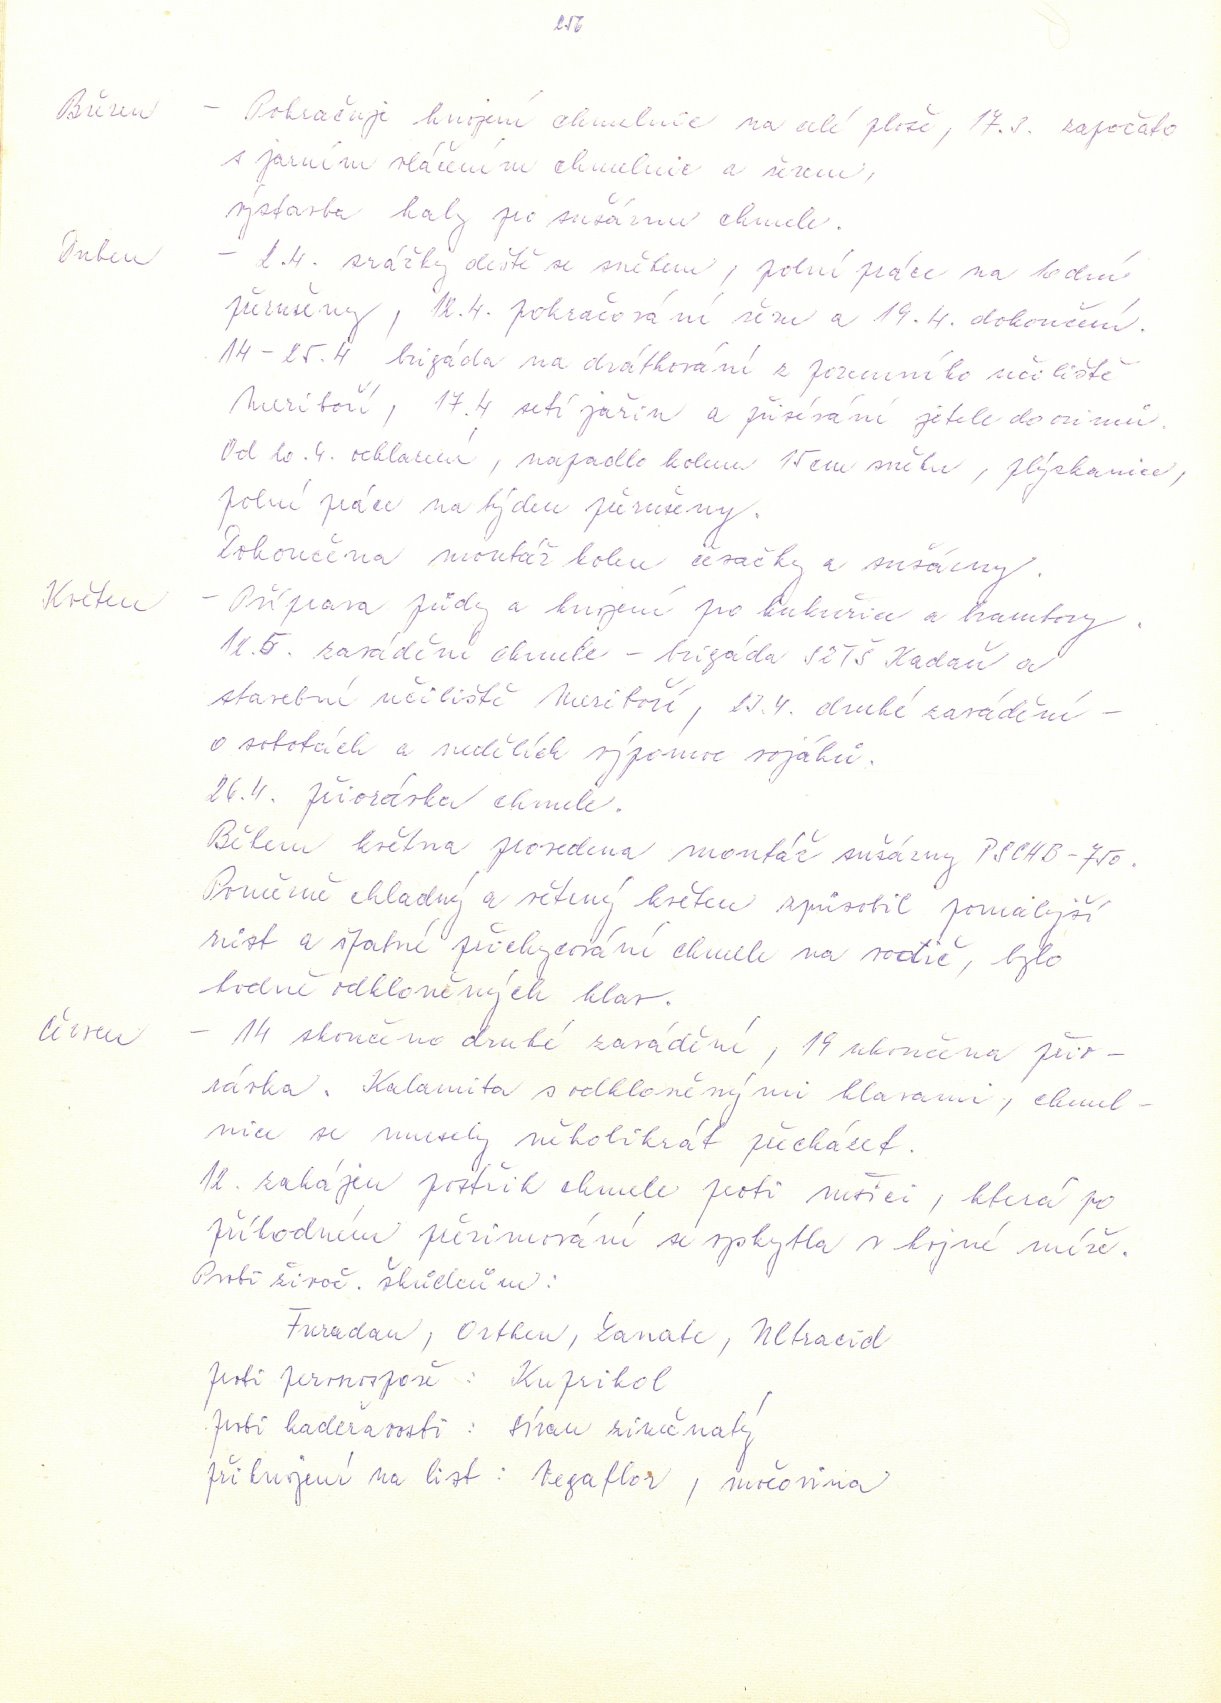 256
Březen - Pokračuje hnojení chmelnic na celé ploše, 17.3. započato
s jarním vláčením chmelnic a řezem,
výstavba haly pro sušárnu chmele.
Duben - 2.4. srážky deště se sněhem, polní práce na 10 dní
přerušeny, 12.4. pokračování řezu a 19.4. dokončení.
14-25.4 brigáda na drátkování z pozemního učiliště
Meziboří, 17.4 setí jařin a přisévání jetele do ozimů.
Od 20.4. ochlazení, napadlo kolem 15 cm sněhu, plýskanice,
polní práce na týden přerušeny.
Dokončena montáž kolem česačky a sušárny.
Květen - Příprava půdy a hnojení pro kukuřici a brambory.
12.5. zavádění chmele - brigáda SZTŠ Kadaň a
stavební učiliště Meziboří, 23.4. druhé zavádění -
o sobotách a nedělích výpomoc vojáků.
26.4. přiorávka chmele.
Během května provedena montáž sušárny PSCHB-750.
Poměrně chladný a větrný květen způsobil pomalejší
růst a špatné přichycování chmele na vodič, bylo
hodně odkloněných hlav.
Červen - 14 skončeno druhé zavádění, 19 ukončena přio-
rávka. Kalamita s odkloněnými hlavami, chmel-
nice se musely několikrát přecházet.
12. zahájen postřik chmele proti mšici, která po
příhodném přezimování se vyskytla v hojné míře.
Proti živoč. škůdcům:
Furadan, Orthen, Lanate, Ultracid
proti peronospoře : Kuprikol
proti kadeřavosti : síran zinečnatý
přihnojení na list : Vegaflor, močovina